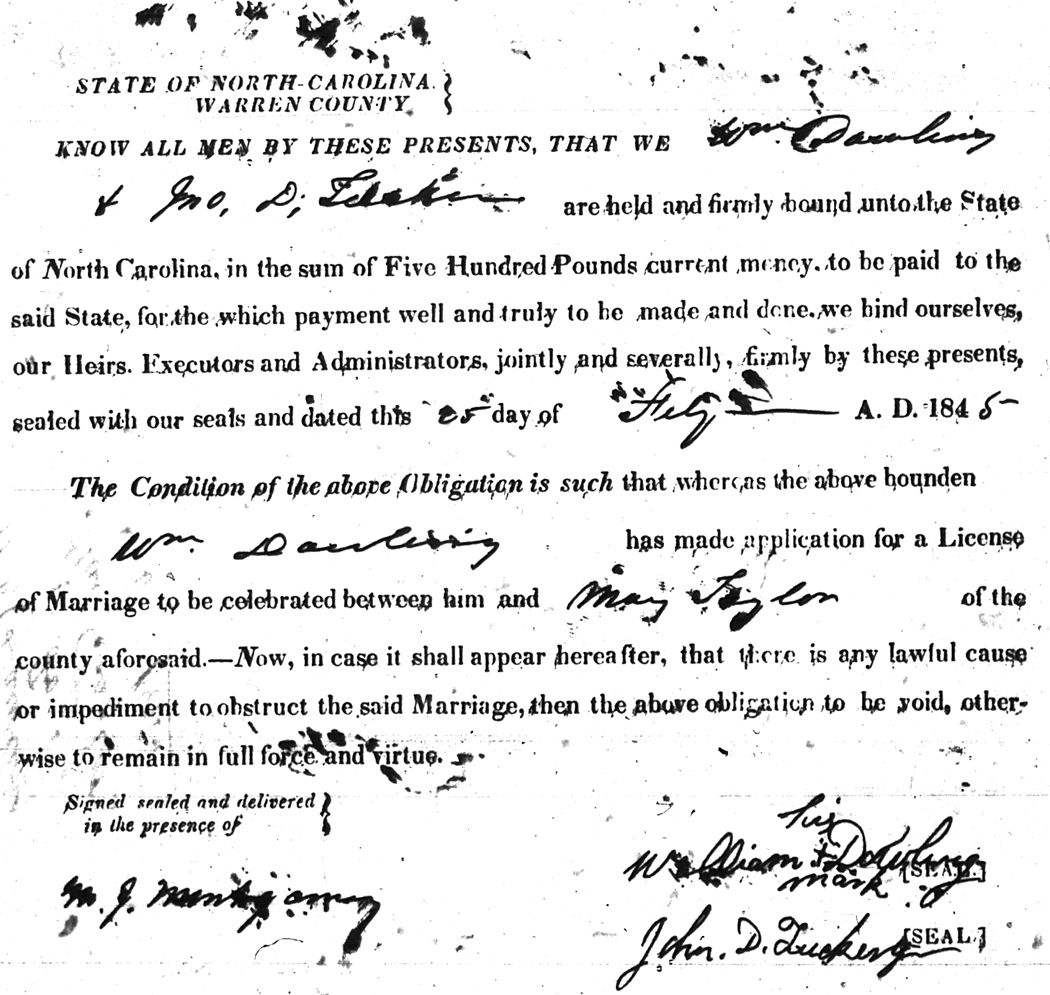 STATE OF NORTH-CAROLINA.
WARREN COUNTY.
KNOW ALL MEN BY THESE PRESENTS, THAT WE Wm. Dowling
& Jno. D. are held and firmly bound unto the State
of North Carolina, in the sum of Five Hundred Pounds current money, to be paid to the
said State, for the which payment well and truly to be made and done, we bind ourselves,
our Heirs. Executors and Administrators, jointly and severally, firmly by these presents,
sealed with our seals and dated this 25 day of Feby A. D. 1845
The Condition of the above Obligation is such that whereas the above bounden
Wm. Dowling has made application for a License
of Marriage to be celebrated between him and Mary Taylor of the
county aforesaid.—Now, in case it shall appear hereafter, that there is any lawful cause
or impediment to obstruct the said Marriage, then the above obligation to be void, other-
wise to remain in full force and virtue.
Signed sealed and delivered
in the presence of
his
William + Dowling [SEAL.]
mark
M. J. Montgomery
John. D. [SEAL.]